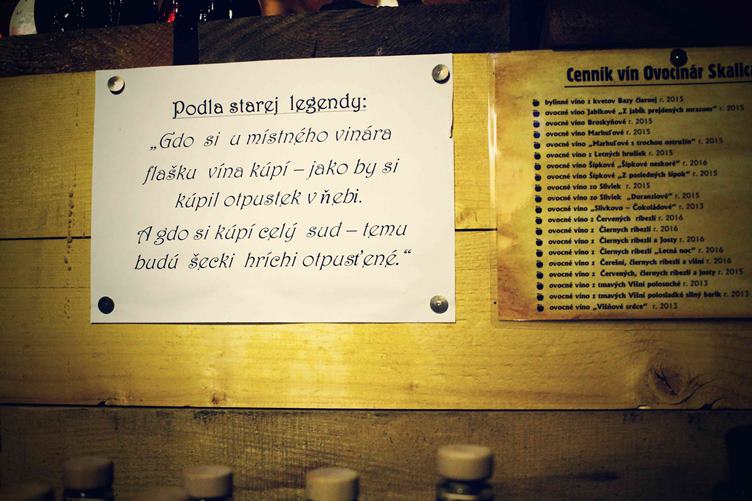 Podla starej legendy:
„Gdo si u místného vinára
flašku vína kúpí – jako by si
kúpil otpustek v ňebi.
A gdo si kúpí celý sud – temu
budú šecki hríchi otpusťené.“
Cenník vín Ovocinár Skalica
bylinné víno z kvetov Bazy čiernej r. 2015
ovocné víno Jablkové „Z jabĺk prejdených mrazom“ r. 2015
ovocné víno Broskyňové r. 2015
ovocné víno Marhuľové r. 2015
ovocné víno „Marhuľové s trochou ostružín“ r. 2015
ovocné víno z Letných hrušiek r. 2015
ovocné víno Šípkové „Šípkové neskoré“ r. 2016
ovocné víno Šípkové „Z posledných šípok“ r. 2015
ovocné víno zo Sliviek r. 2015
ovocné víno zo Sliviek „Duranzlové“ r. 2015
ovocné víno „Slivkovo – Čokoládové“ r. 2013
ovocné víno z Červených ríbezlí r. 2016
ovocné víno z Čiernych ríbezlí r. 2016
ovocné víno z Čiernych ríbezlí a josty r. 2016
ovocné víno z Čiernych ríbezlí „Letná noc“ r. 2016
ovocné víno z Čerešní, čiernych ríbezlí a višní r. 2016
ovocné víno z Červených, čiernych ríbezlí a josty r. 2015
ovocné víno z tmavých Višní polosuché r. 2013
ovocné víno z tmavých Višní polosladké silný borík r. 2013
ovocné víno „Višňové srdce“ r. 2013